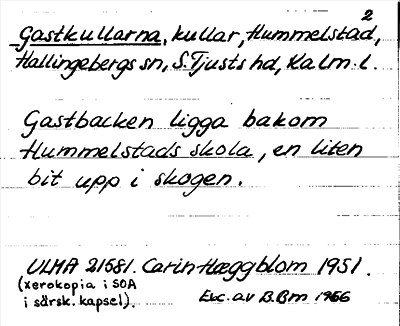 2
Gastkullarna, kullar, Hummelstad,
Hallingebergs sn, S. Tjusts hd, Kalm. l.
Gastbacken ligga bakom
Hummelstads skola, en liten
bit upp i skogen.
ULMA 21581. Carin Hæggblom 1951.
(xerokopia i SOA
i särsk. kapsel). Exc. av B.Bm 1966